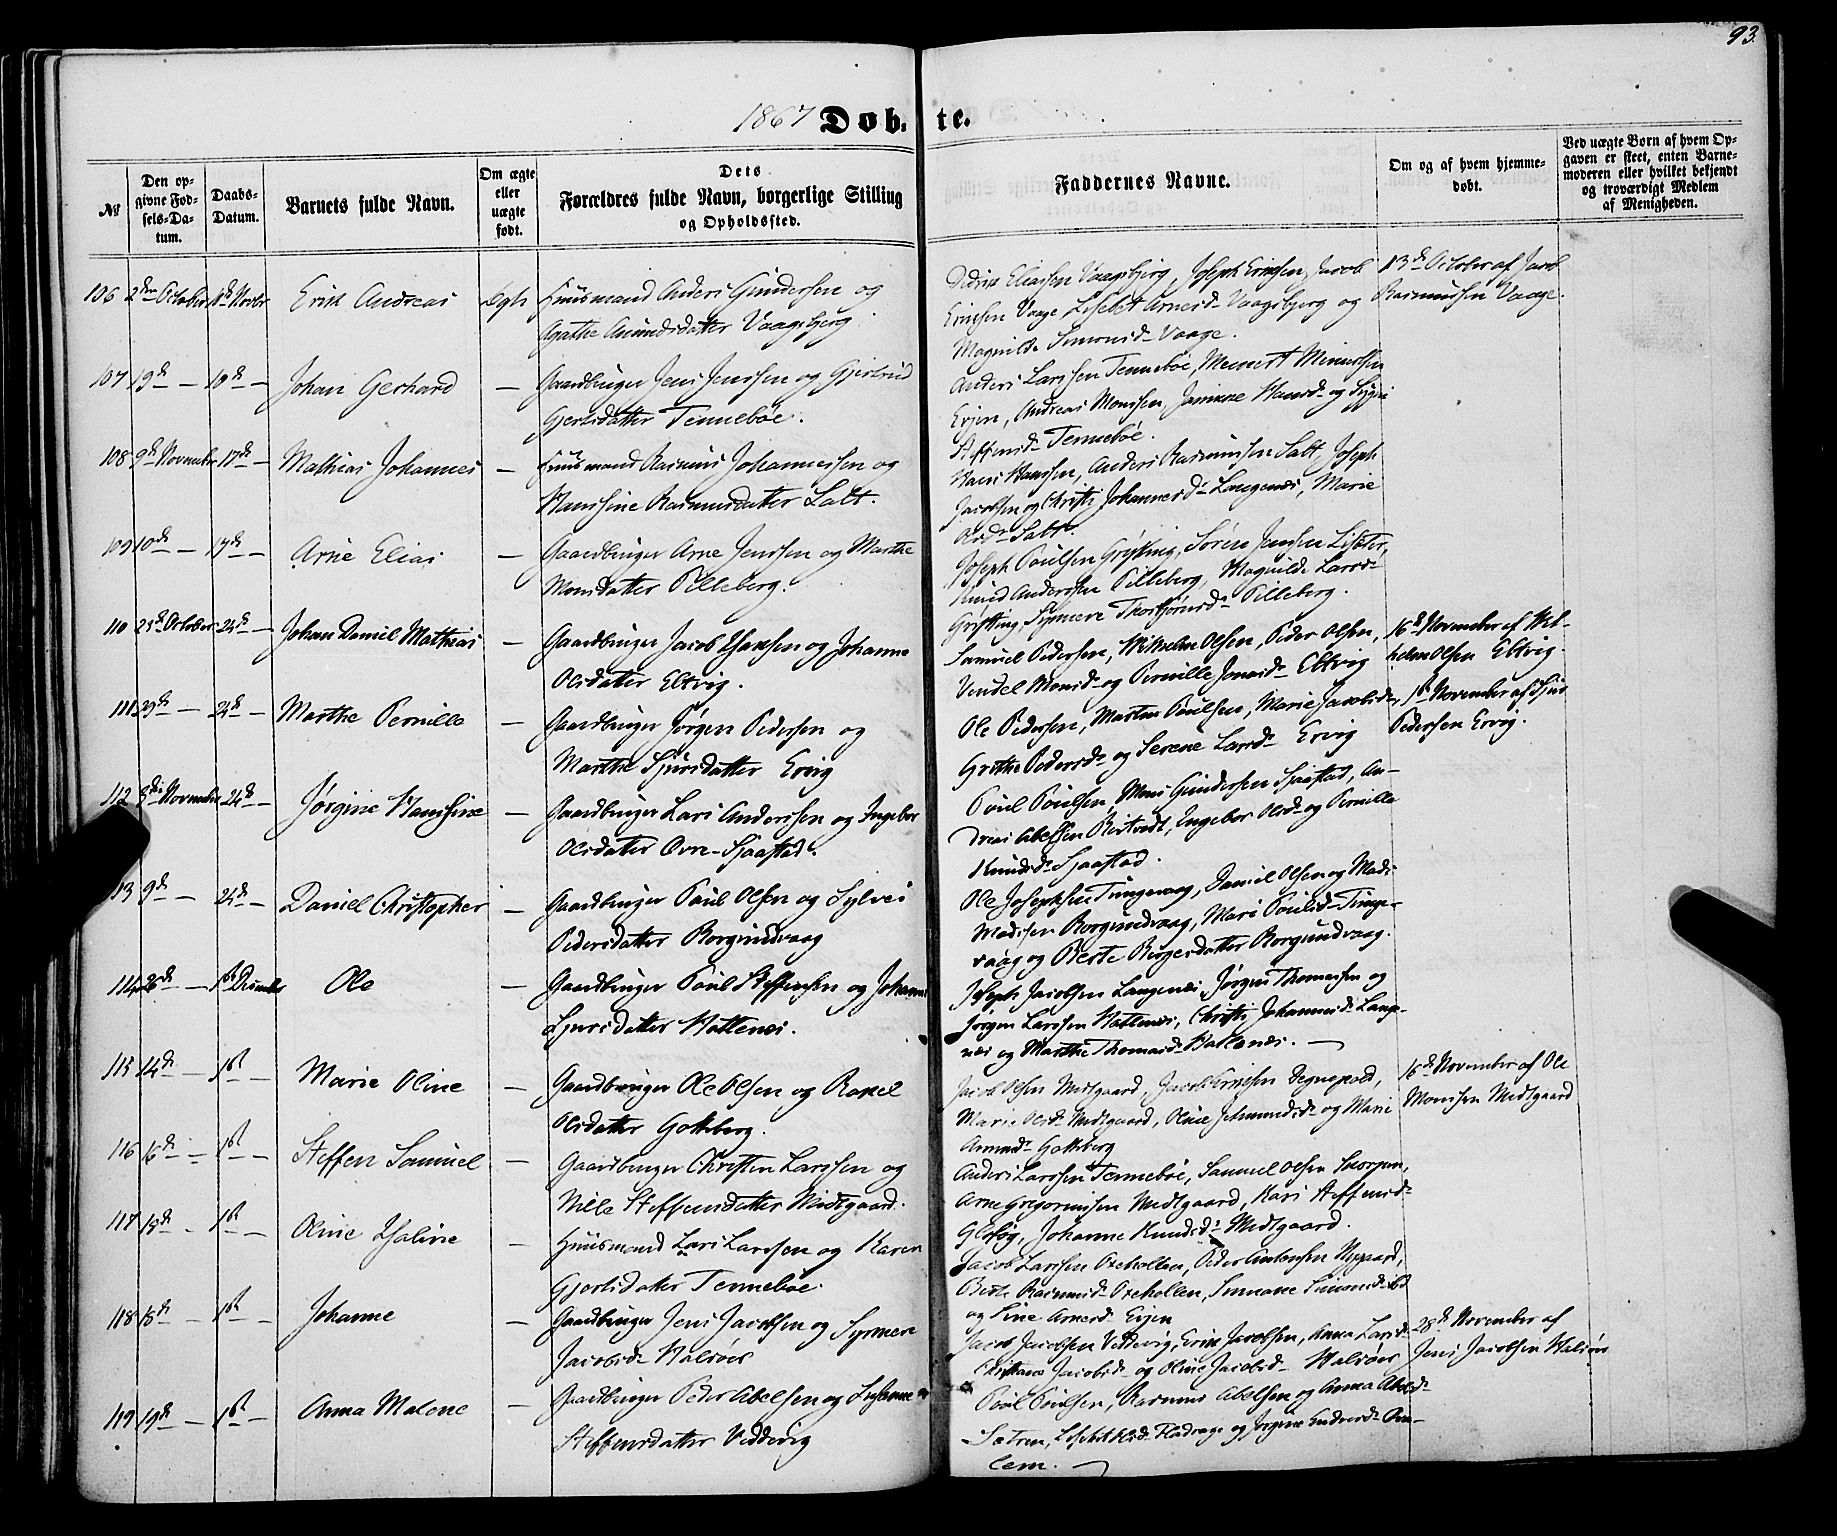 93.
1867 Døb-te.
№
Den op-
givne Fød-
sels-Da-
tum.
Daabs-
Datum.
Barnets fulde Navn.
Om ægte
eller
uægte
født.
Dets
Forældres fulde Navn, borgerlige Stilling
og Opholdssted.
Faddernes Navne.
Om og af hvem hjemme-
døbt.
Ved uægte Børn af hvem Op-
gaven er skeet, enten Barne-
moderen eller hvilket bekjendt
og troværdigt Medlem
af Menigheden.
106 October Novbr Erik Andreas Ægte Huusmand Anders Gundersen og
Agathe Amundsdatter Vaagsbjerg.
Didrik Eliassen Vaagsbjerg, Joseph Ericsen, Jacob
Ericsen Vaage Lisebet Arnesd. Vaagsbjerg og
Magnilde Simonsd. Vaage.
13de October af Jacob
Rasmussen Vaage.
107 19de — 10de — Johan Gerhard — Gaardbruger Jens Jenssen og Gjertrud
Gjertsdatter Tennebøe.
Anders Larssen Tennebøe, Meinert
Andreas Monssen, Hansd. og
Steffensd. Tennebøe.
108 9de November 17de — Mathias Johannes — Huusmand Rasmus Johannessen og
Hanssine Rasmusdatter Salt.
Hans Hanssen, Anders Rasmussen Salt, Joseph
Jacobsen og Christi Johannesd. Langenæs, Marie
Olsd. Salt.
109 10de — 17de — Arne Elias — Gaardbruger Arne Jenssen og Marthe
Monsdatter Pilleberg.
Joseph Poulsen Søren Jensen
Knud Anderssen Pilleberg, Magnilde Larsd.
Synneve Pilleberg.
110 October 24de — Johan Daniel Mathias — Gaardbruger Jacob Hanssen og Johanne
Olsdatter Eltvig.
Samuel Pedersen, Wilhelm Olsen, Peder Olsen,
Vendel Monsd. og Pernille Jonasd. Eltvig
16de November af Wil-
helm Olsen Eltvig.
111 29de — 24de — Marthe Pernille — Gaardbruger Jørgen Pedersen og
Marthe Sjursdatter Ervig
Ole Pedersen, Martin Poulsen, Marie Jacobsd.,
Grethe Pedersd. og Serene Larsd. Ervig
November af Sjur
Pedersen Ervig.
112 8de November 24de — Jørgine Hanssine — Gaardbruger Lars Anderssen og Ingebor
Olsdatter Øvre-Sjaastad.
Poul Poulsen, Mons Gundersen Sjaastad, An-
dreas Abelssen Ristvedt, Engebor Olsd. og Pernille
Knudsd. Sjaastad.
113 9de — 24de — Daniel Christopher — Gaardbruger Poul Olsen og Sylvei
Pedersdatter Borgundvaag
Ole Josephsen Tungevaag, Daniel Olsen og Mads
Madsen Borgundvaag, Mari Poulsd. Tunge-
vaag og Berte Børgesdatter Borgundvaag.
114 26de — 1ste December Ole — Gaardbruger Poul Steffensen og Johanne
Sjursdatter Hatlenæs.
Joseph Jacobsen Langenæs, Jørgen Thomassen og
Jørgen Larssen Hatlenæs, Christi Johannesd. Lange-
næs og Marthe Thomasd. Hatlenæs. —
115 14de — 1ste — Marie Oline — Gaardbruger Ole Olsen og Rakel
Olsdatter Gotteberg.
Jacob Olsen Midtgaard, Jacob Ericsen Degnepold,
Marie Olsd. Midtgaard, Oline og Marie
Gotteberg
16de November af Ole
Monssen Midtgaard
116 16de — 1ste — Steffen Samuel — Gaardbruger Christen Larssen og
Nille Steffensdatter Midtgaard.
Anders Larssen Tennebøe, Samuel Olsen
Arne Gregoriussen Midtgaard, Kari Steffensd.
Johanne Knudsd. Midtgaard.
117 18de — 1ste — Oline Haline — Huusmand Lars Larssen og Karen
Gjertsdatter Tennebøe.
Jacob Larssen Oxehollen, Peder Antonsen Nygaard,
Berte Rasmusd. Oxehollen, Simonsd.
og Line Arnesd. Ervjen
118 18de — 1ste — Johanne — Gaardbruger Jens Jacobsen og Synneve
Jacobsd. Halsøer
Jacob Jacobsen Vedvig, Erik Jacobsen, Anna Larsd.
Jacobsd. og Oline Jacobsd. Halsøer
28de November af
Jens Jacobsen Halsøer
119 19de — 1ste — Anna Malene — Gaardbruger Peder Abelsen og Johanne
Steffensdatter Veddevig
Poul Poulsen, Rasmus Abelsen og Anna Abelsd.
Sætren, Lisebet Olsd. Fladrage og Jørgine